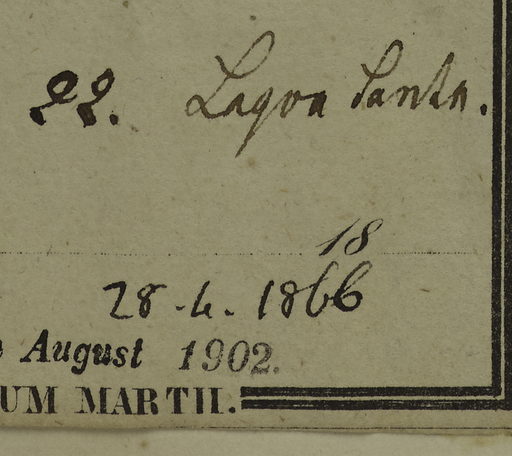 22. Lagoa Santa.
18
28-4. 1866
August 1902.
UM MARTII.